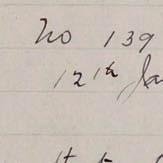 No 139
12th Jan